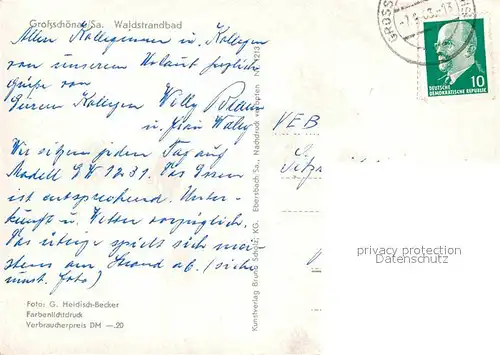 Großschönau/Sa. Waldstrandbad
Allen Kolleginnen u. Kollegen
von unserem Urlaub herzliche
Grüße von
Eurem Kollegen Willy
u. Frau
Wir sitzen jeden Tag auf
Modell GW 1231. Das Essen
ist entsprechend. Unter-
kunft u. Wetter vorzüglich.
Das übrige spielt sich mei-
stens am Strand ab. (siehe
umst. Foto)
Foto: G. Heidisch-Becker
Farbenlichtdruck
Verbraucherpreis DM —.20
Kunstverlag Bruno Scholz, KG. Ebersbach/Sa., Nachdruck verboten. Nr.
VEB
GROSS
DEUTSCHE
DEMOKRATISCHE REPUBLIK
10
privacy protection
Datenschutz